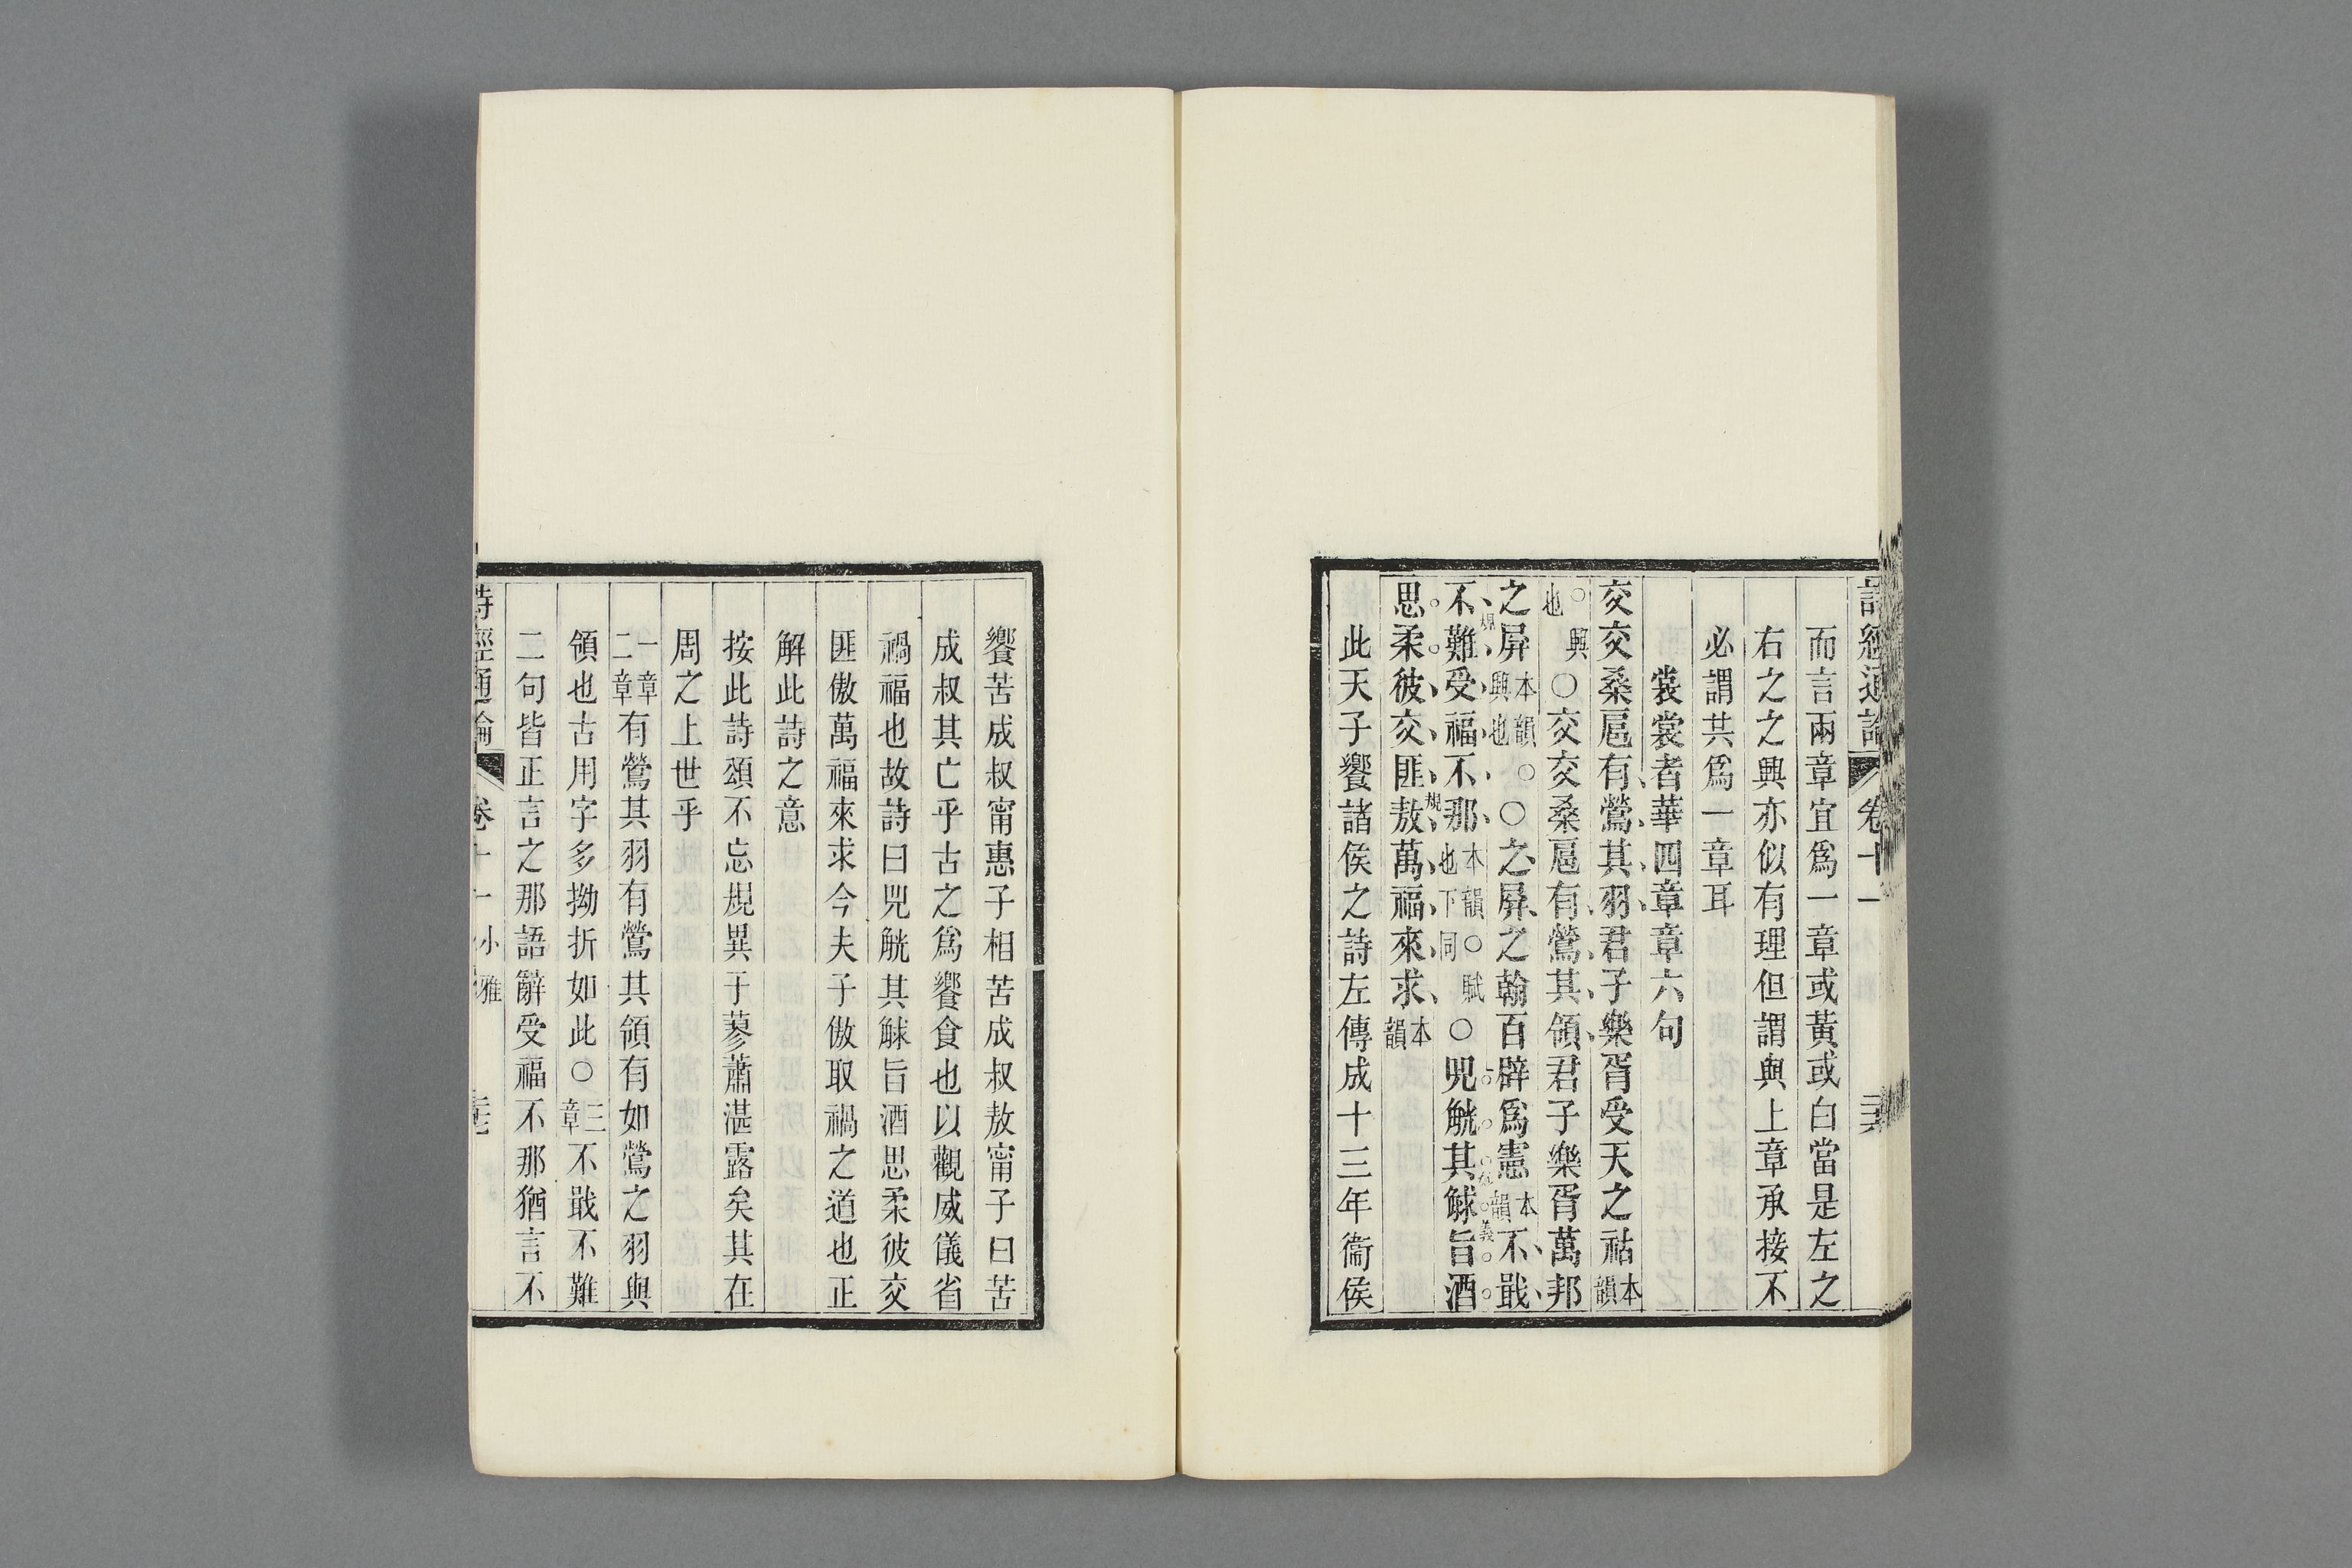 詩經通論 卷十一
而言兩章宜爲一章或黃或白當是左之
右之之興亦似有理但謂與上章承接不
必謂共爲一章耳
裳裳者華四章章六句
交交桑扈有鶯其羽君子樂胥受天之祜本韻
○興也○交交桑扈有鶯其領君子樂胥萬邦
之屏本韻○興也○之屏之翰百辟爲憲本韻不戢
不難受福不那本韻○賦也下同○兕觥其觩旨酒
思柔彼交匪敖萬福來求本韻
此天子饗諸侯之詩左傳成十三年衞侯
饗苦成叔甯惠子相苦成叔敖甯子曰苦
成叔其亡乎古之爲饗食也以觀威儀省
禍福也故詩曰兕觥其觩旨酒思柔彼交
匪傲萬福來求今夫子傲取禍之道也正
解此詩之意
按此詩頌不忘規異于蓼蕭湛露矣其在
周之上世乎
一章二章有鶯其羽有鶯其領有如鶯之羽與
領也古用字多拗折如此○三章不戢不難
二句皆正言之那語辭受福不那猶言不
詩經通論 卷十一 小雅